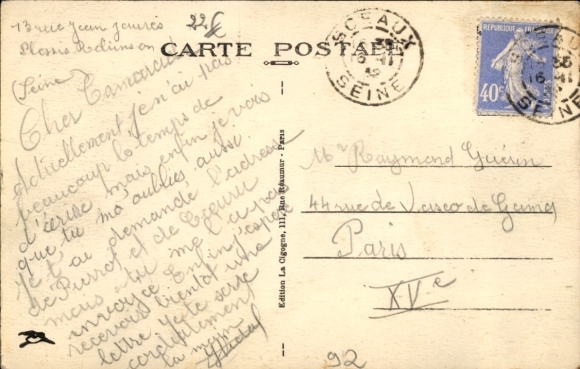 13 rue Jean Jaurès
Plessis Robinson
(Seine)
22
CARTE POSTALE
SCEAUX
SEINE
REPUBLIQUE FRANÇAISE
40c
Cher Camarade
Actuellement je n'ai pas
beaucoup le temps de
d'écrire mais enfin je vois
que tu m'oublies aussi.
Je t'ai demandé l'adresse
de Pierrot et de
mais tu me l'a pas
envoyée Enfin j'espère
recevoir bientôt une
lettre Je te serre
cordialement
la main
Edition La Cigogne, 111, Rue Réaumur - Paris
Mr Raymond Guérin
44 rue de Vasco de Gama
Paris
XVe
92